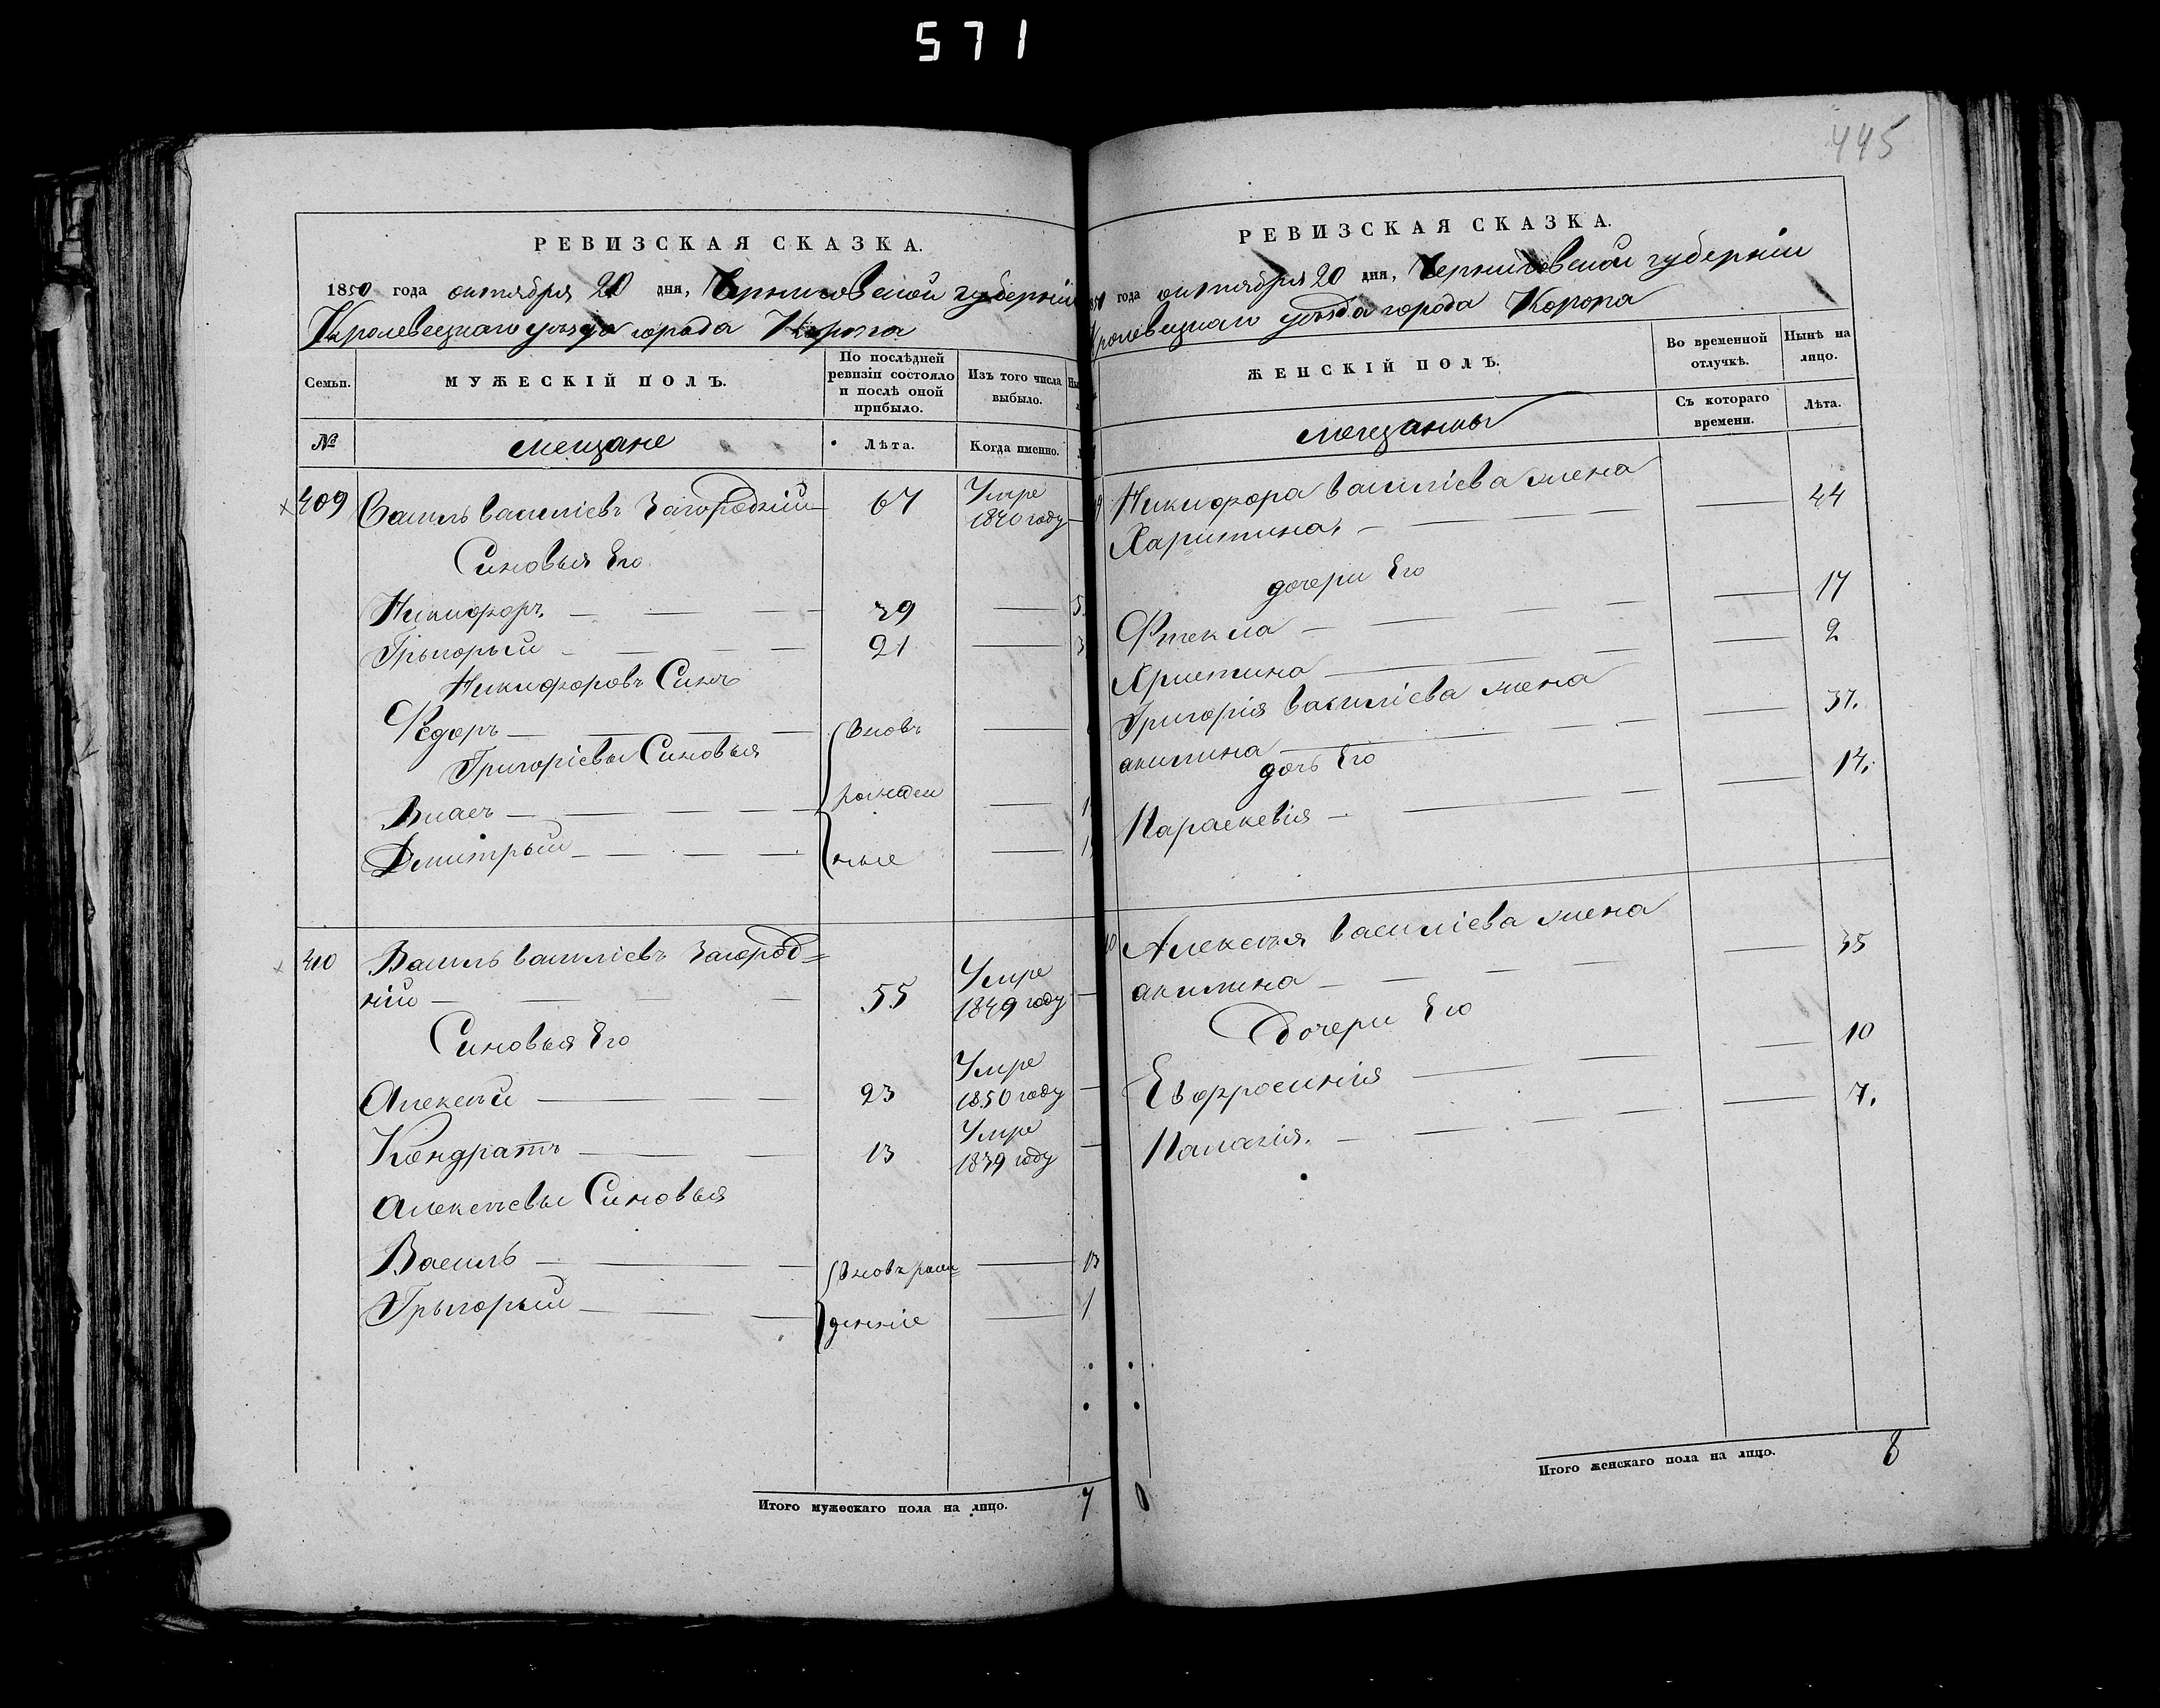 571
445
РЕВИЗСКАЯ СКАЗКА.
1850 года октября 20 дня, Черниговской губерніи
Кролевецкаго уѣзда города Коропа
Семьи.
МУЖЕСКІЙ ПОЛЪ.
По послѣдней ревизіи состояло и послѣ оной прибыло.
Изъ того числа выбыло.
№
мещане
Лѣта.
Когда именно.
409 Василь Василіевъ Загородній 67 Умре 1840 году
Синовья Его
Никифоръ 39
Грыгорый 21
Никифоровъ Синъ
Федоръ Вновь
Григоріевы Синовья
Власъ рожден
Димитрый ные
410 Василь Василіевъ Загород=
ній 55 Умре 1849 году
Синовья Его
Алексѣй 23 Умре 1850 году
Кондратъ 13 Умре 1839 году
Алексѣевы Синовья
Василь Вновь рож= 13
Грыгорый денніе 1
Итого мужескаго пола на лицо. 7
РЕВИЗСКАЯ СКАЗКА.
года октября 20 дня, Черниговской губерніи
Кролевецкаго уѣзда города Коропа
ЖЕНСКІЙ ПОЛЪ.
Во временной отлучкѣ.
Нынѣ на лицо.
мещанки
Съ котораго времени.
Лѣта.
Никифора Василіева жена
Харитина 44
дочери Его
Фтекла 17
Христина 2
Григорія Василіева жена
акилина 37.
дочь Его
Параскевія 14.
Алексѣя Василіева жена
акилина 35
Дочери Его
Евфросинія 10
Палагія. 7.
Итого женскаго пола на лицо. 8